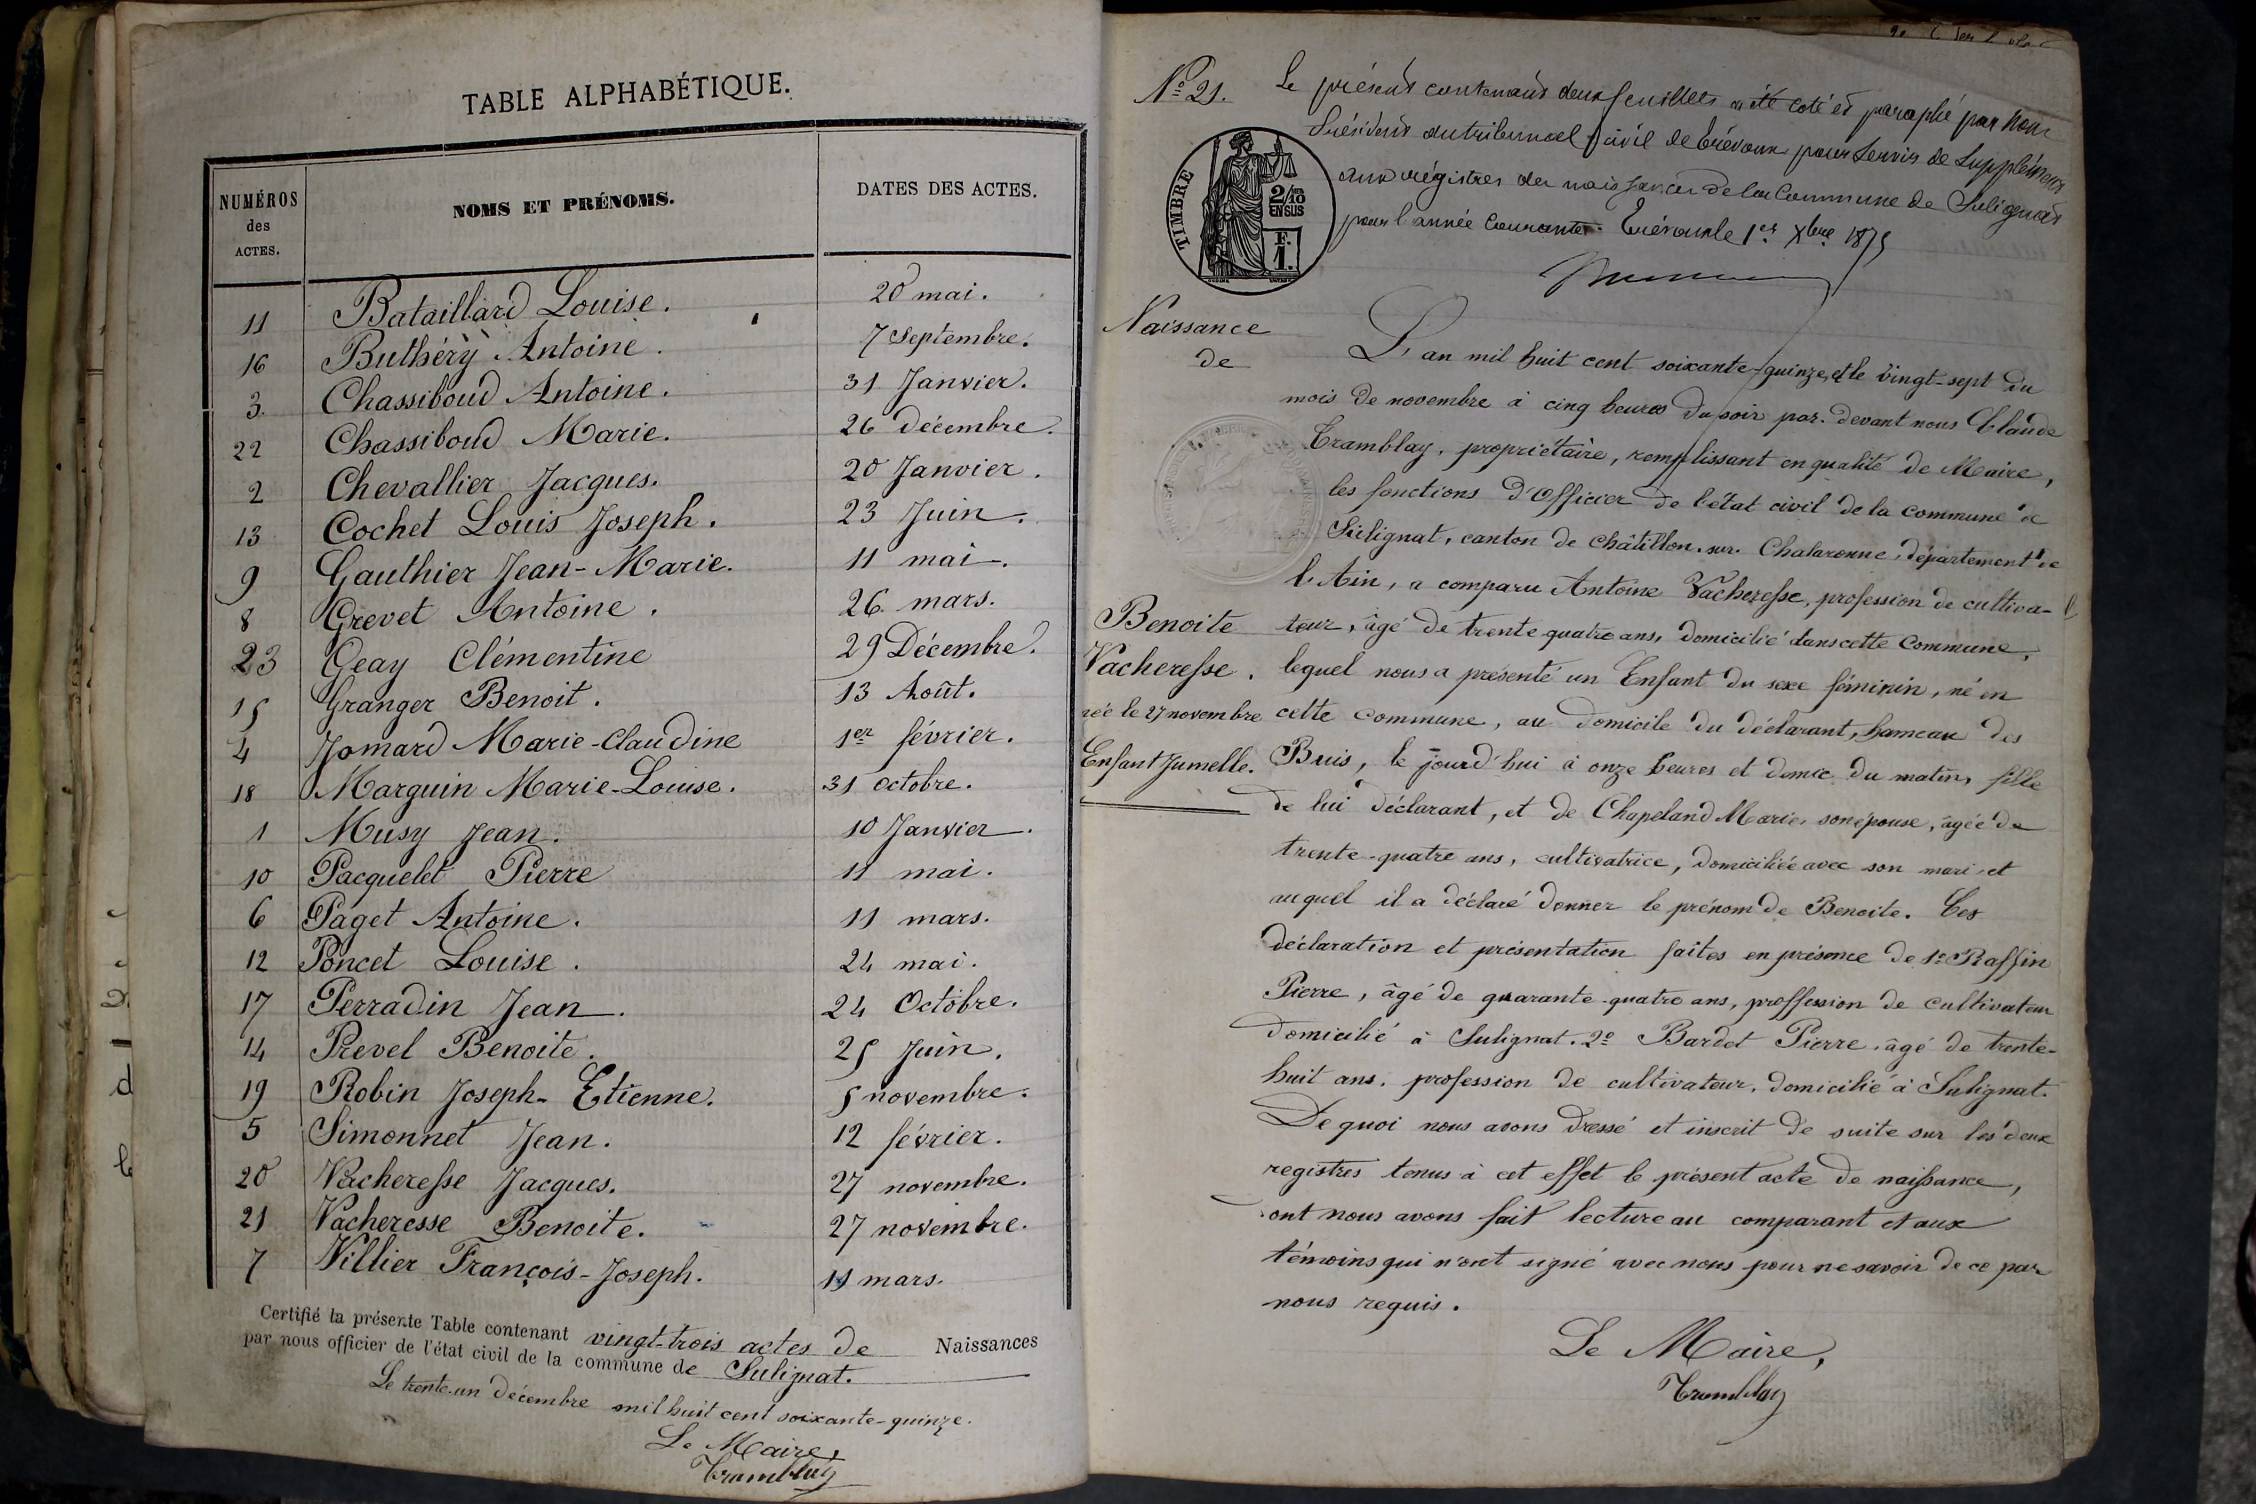 TABLE ALPHABÉTIQUE.
NUMÉROS
des
ACTES.
NOMS ET PRÉNOMS.
DATES DES ACTES.
11 Bataillard Louise. 20 mai.
16 Buthéry Antoine. 7 Septembre.
3 Chassiboud Antoine. 31 Janvier.
22 Chassiboud Marie. 26 décembre.
2 Chevallier Jacques. 20 Janvier.
13 Cochet Louis Joseph. 23 Juin.
9 Gauthier Jean-Marie. 11 mai.
8 Grevet Antoine. 26 mars.
23 Geay Clémentine 29 Décembre.
15 Granger Benoit. 13 Août.
4 Jomard Marie-Claudine 1er février.
18 Marguin Marie-Louise. 31 octobre.
1 Musy Jean. 10 Janvier.
10 Pacquelet Pierre 11 mai.
6 Paget Antoine. 11 mars.
12 Poncet Louise. 24 mai.
17 Perradin Jean. 24 Octobre.
14 Prevel Benoite. 25 Juin.
19 Robin Joseph-Etienne. 5 novembre.
5 Simonnet Jean. 12 février.
20 Vacheresse Jacques. 27 novembre.
21 Vacheresse Benoite. 27 novembre.
7 Villier François-Joseph. 11 mars.
Certifié la présente Table contenant vingt-trois actes de Naissances
par nous officier de l'état civil de la commune de Sulignat.
Le trente-un décembre mil huit cent soixante-quinze.
Le Maire,
Tramblay
Nº 21.
Le présent contenant deux feuillets a été coté et paraphé par nous
Président du tribunal civil de Trévoux pour servir de supplément
aux régistres des naissances de la Commune de Sulignat
pour l'année courante. Trévoux le 1er Xbre 1875
TIMBRE
2/10
EN SUS
F.
1.
Naissance
de
Benoite
Vacheresse.
née le 27 novembre
Enfant Jumelle.
L'an mil huit cent soixante-quinze, et le vingt-sept du
mois de novembre à cinq heures du soir par-devant nous Claude
Tramblay, propriétaire, remplissant en qualité de Maire,
les fonctions d'Officier de l'état civil de la commune de
Sulignat, canton de Châtillon-sur-Chalaronne, département de
l'Ain, a comparu Antoine Vacheresse, profession de cultiva-
teur, âgé de trente quatre ans, domicilié dans cette commune,
lequel nous a présenté un Enfant du sexe féminin, né en
cette commune, au domicile du déclarant, hameau des
Buis, le jourd'hui à onze heures et demie du matin, fille
de lui déclarant, et de Chapeland Marie, son épouse, âgée de
trente-quatre ans, cultivatrice, domiciliée avec son mari, et
auquel il a déclaré donner le prénom de Benoite. Ces
déclaration et présentation faites en présence de 1º Raffin
Pierre, âgé de quarante-quatre ans, proffession de cultivateur
domicilié à Sulignat. 2º Bardet Pierre, âgé de trente-
huit ans, profession de cultivateur, domicilié à Sulignat.
De quoi nous avons dressé et inscrit de suite sur les deux
registres tenus à cet effet le présent acte de naissance,
dont nous avons fait lecture au comparant et aux
témoins qui n'ont signé avec nous pour ne savoir de ce par
nous requis.
Le Maire,
Tramblay